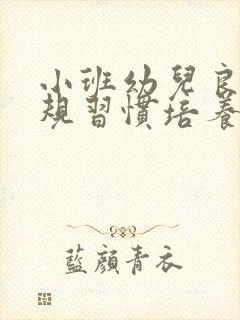 小班幼兒良
規習慣培養
藍顏青衣